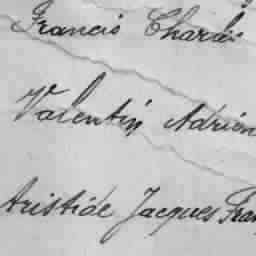 Francis Charles
Valentin Adrien
Aristide Jacques Fran